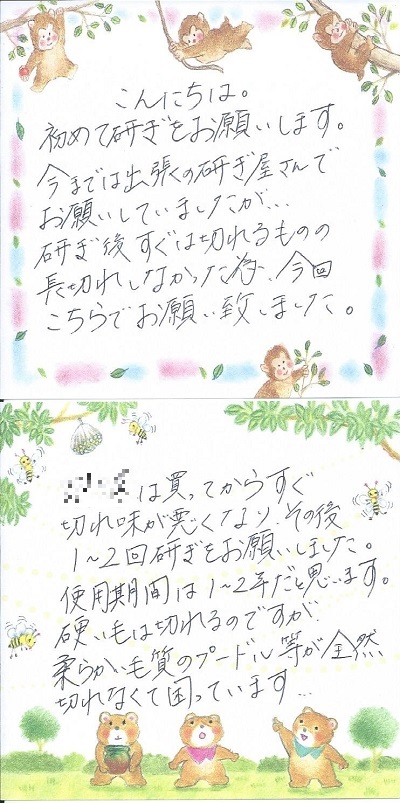 こんにちは。
初めて研ぎをお願いします。
今までは出張の研ぎ屋さんで
お願いしていましたが…
研ぎ後すぐは切れるものの
長切れしなかった為、今回
こちらでお願い致しました。
は買ってからすぐ
切れ味が悪くなり、その後
1~2回研ぎをお願いしました。
使用期間は1~2年だと思います。
硬い毛は切れるのですが
柔らかい毛質のプードル等が全然
切れなくて困っています…